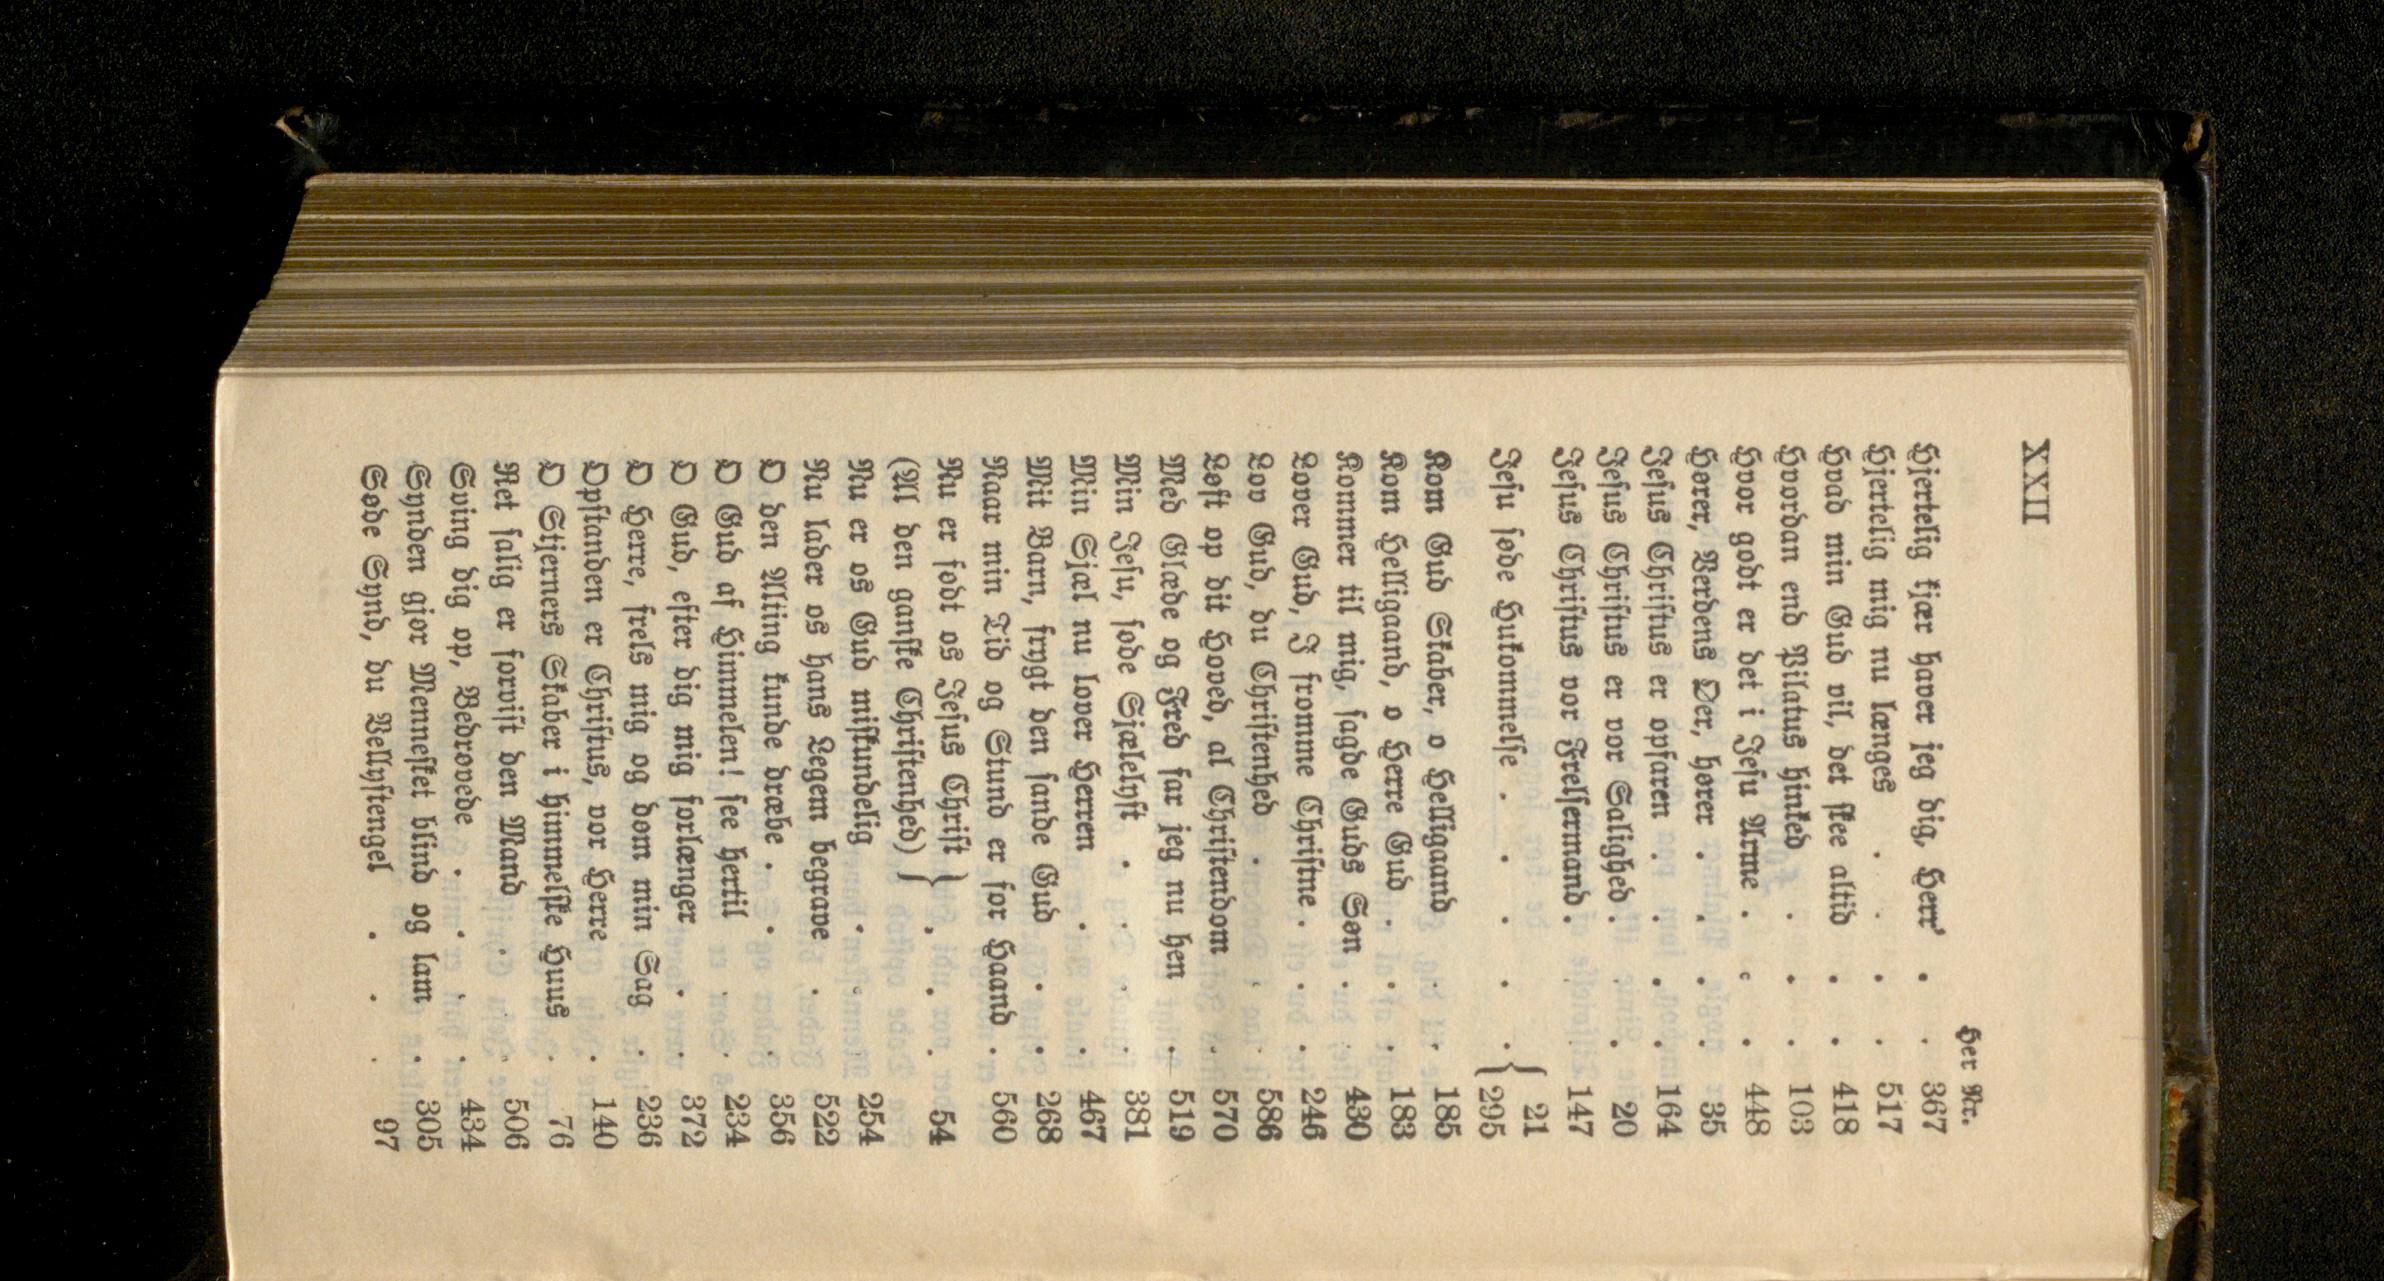 XXII
Her Nr.
Hjertelig kjær haver jeg dig, Herr' . . 367
Hjertelig mig nu længes . . . . 517
Hvad min Gud vil, det skee altid . . 418
Hvordan end Pilatus hinked . . . 103
Hvor godt er det i Jesu Arme . . . 448
Hører, Verdens Øer, hører . . . . 35
Jesus Christus er opfaren . . . . 164
Jesus Christus er vor Salighed . . . 20
Jesus Christus vor Frelsermand . . . 147
Jesu søde Hukommelse . . . . . { 21
295
Kom Gud Skaber, o Helligaand . . 185
Kom Helligaand, o Herre Gud . . . 183
Kommer til mig, sagde Guds Søn . . 430
Lover Gud, I fromme Christne . . . 246
Lov Gud, du Christenhed . . . . 586
Løft op dit Hoved, al Christendom . . 570
Med Glæde og Fred far jeg nu hen . . 519
Min Jesu, søde Sjælelyst . . . . 381
Min Sjæl nu lover Herren . . . 467
Mit Barn, frygt den sande Gud . . . 268
Naar min Tid og Stund er for Haand . 560
Nu er født os Jesus Christ } . . . 54
(Al den ganske Christenhed)
Nu er os Gud miskundelig . . . 254
Nu lader os hans Legem begrave . . 522
O den Alting kunde dræbe . . . . 356
O Gud af Himmelen! see hertil . . . 234
O Gud, efter dig mig forlænger . . . 372
O Herre, frels mig og døm min Sag . 236
Opstanden er Christus, vor Herre . . 140
O Stjerners Skaber i himmelske Huus . 76
Ret salig er forvist den Mand . . . 506
Sving dig op, Bedrøvede . . . . 434
Synden gjør Mennesket blind og lam . 305
Søde Synd, du Vellystengel . . . 97